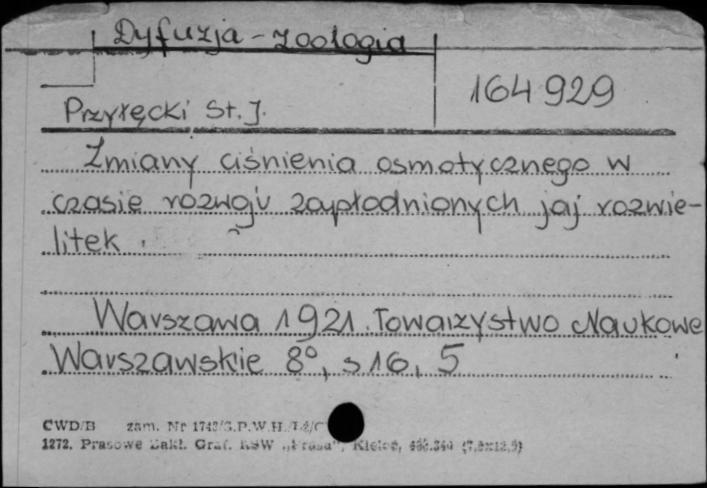 Dyfuzja - zoologia
164929
Przyłęcki St. J.
Zmiany ciśnienia osmotycznego w
czasie rozwoju zapłodnionych jaj rozwie-
litek.
Warszawa 1921. Towarzystwo Naukowe
Warszawskie 8°, s 16, 5
CWD/B zam. Nr
1272. Prasowe Zakł. Graf. RSW „Prasa", Kielce,